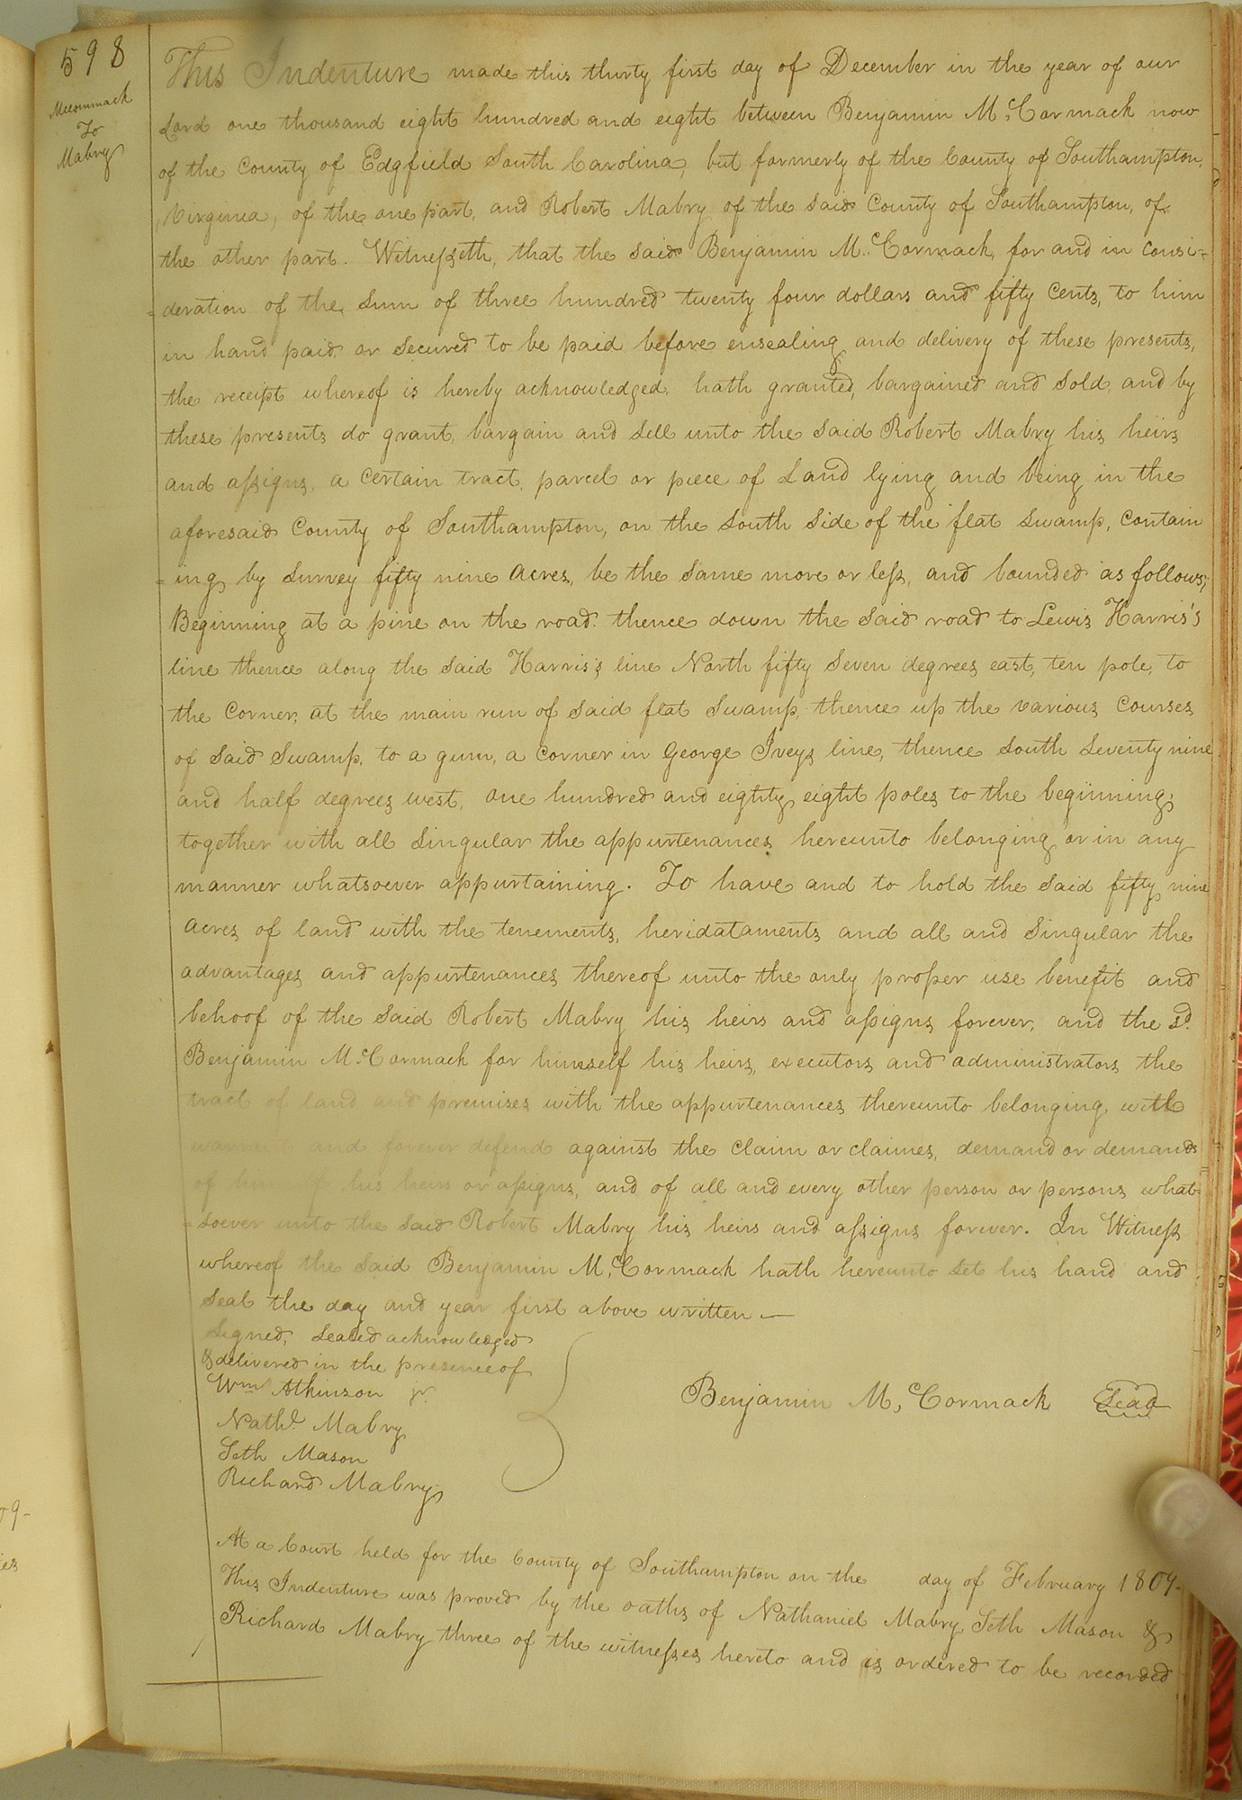 598
McCormmack
To
Mabry
This Indenture made this thirty first day of December in the year of our
Lord one thousand eight hundred and eight between Benjamin Mc.Cormack now
of the County of Edgfield South Carolina, but formerly of the County of Southampton,
Virginia, of the one part, and Robert Mabry of the said County of Southampton, of
the other part. Witnesseth, that the said Benjamin Mc.Cormack, for and in consi-
-deration of the Sum of three hundred twenty four dollars and fifty Cents, to him
in hand paid or Secured to be paid before ensealing and delivery of these presents,
the receipt whereof is hereby acknowledged, hath granted, bargained and Sold, and by
these presents do grant, bargain and Sell unto the said Robert Mabry his heirs
and assigns, a Certain tract, parcel or piece of Land lying and being in the
aforesaid County of Southampton, on the South Side of the flat Swamp, Contain
-ing by Survey fifty nine Acres, be the Same more or less, and bounded as follows;
Beginning at a pine on the road. thence down the Said road to Lewis Harris's
line thence along the Said Harris's line North fifty Seven degrees east, ten pole, to
the Corner, at the main run of Said flat Swamp, thence up the various Courses
of Said Swamp, to a gum, a Corner in George Iveys line, thence South Seventy nine
and half degrees west, one hundred and eighty eight poles to the beginning;
together with all Singular the appurtenances hereunto belonging or in any
manner whatsoever appurtaining. To have and to hold the Said fifty nine
Acres of land with the tenements, heridataments and all and Singular the
advantages and appurtenances thereof unto the only proper use benefit and
behoof of the Said Robert Mabry his heirs and assigns forever, and the sd.
Benjamin Mc.Cormack for himself his heirs, executors and administrators the
tract of land and premises with the appurtenances thereunto belonging, will
warrant and forever defend against the Claim or claimes, demand or demands
of himself his heirs or assigns, and of all and every other person or persons what-
-soever unto the Said Robert Mabry his heirs and assigns forever. In Witness
whereof the Said Benjamin Mc.Cormack hath hereunto Set his hand and
Seal the day and year first above written —
Signed, Sealed acknowledged
& delivered in the presence of
Wm. Atkinson jr.
Benjamin Mc.Cormack Seal
Nathl. Mabry
Seth Mason
Richard Mabry
At a Court held for the County of Southampton on the day of February 1809-
This Indenture was proved by the oaths of Nathaniel Mabry Seth Mason &
Richard Mabry three of the witnesses hereto and is ordered to be recorded